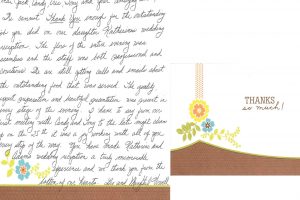 We cannot Thank You enough for the outstanding
job you did on our daughter Katherine's wedding
reception. The flow of the entire evening was
seamless and the staff was both professional and
courteous. We are still getting calls and emails about
the outstanding food that was served. The quality
food preparation and beautiful presentation was evident in
every step of the evening. I have to say from our
first meeting with Cindy and to the late night
on the it was a joy working with all of you
every step of the way. You have made Katherine and
wedding reception a truly memorable
experience and we thank you from the
bottom of our hearts.
THANKS
so much!